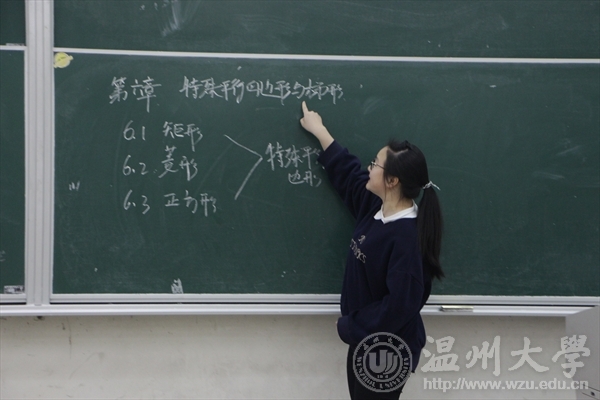 第六章 特殊平行四边形与梯形
6.1 矩形
6.2 菱形
6.3 正方形
特殊平
边形
温州大学
http://www.wzu.edu.cn